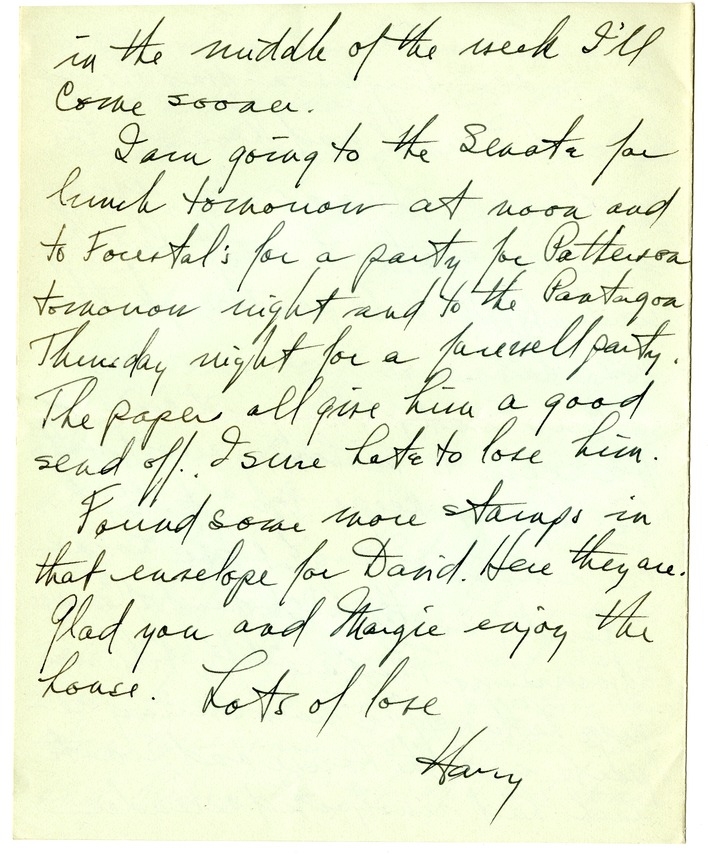 in the middle of the week I'll
come sooner.
I am going to the Senate for
lunch tomorrow at noon and
to Forestal's for a party for Patterson
tomorrow night and to the Pentagon
Thursday night for a farewell party.
The papers all give him a good
send off. I sure hate to lose him.
Found some more stamps in
that envelope for David. Here they are.
Glad you and Margie enjoy the
house. Lots of love
Harry